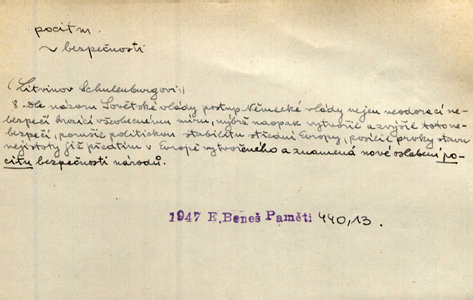 pocit m.
~ bezpečnosti
(Litvinov Schulenburgovi:)
8. dle názoru Sovětské vlády postup Německé vlády nejen neodvrací ne-
bezpečí hrozící všeobecnému míru, nýbrž naopak vytvořil a zvýšil toto ne-
bezpečí, porušil politickou stabilitu střední Evropy, posílil prvky stavu
nejistoty již předtím v Evropě vytvořeného a znamená nové oslabení po-
citu bezpečnosti národů.
1947 E. Beneš Paměti 440,13.